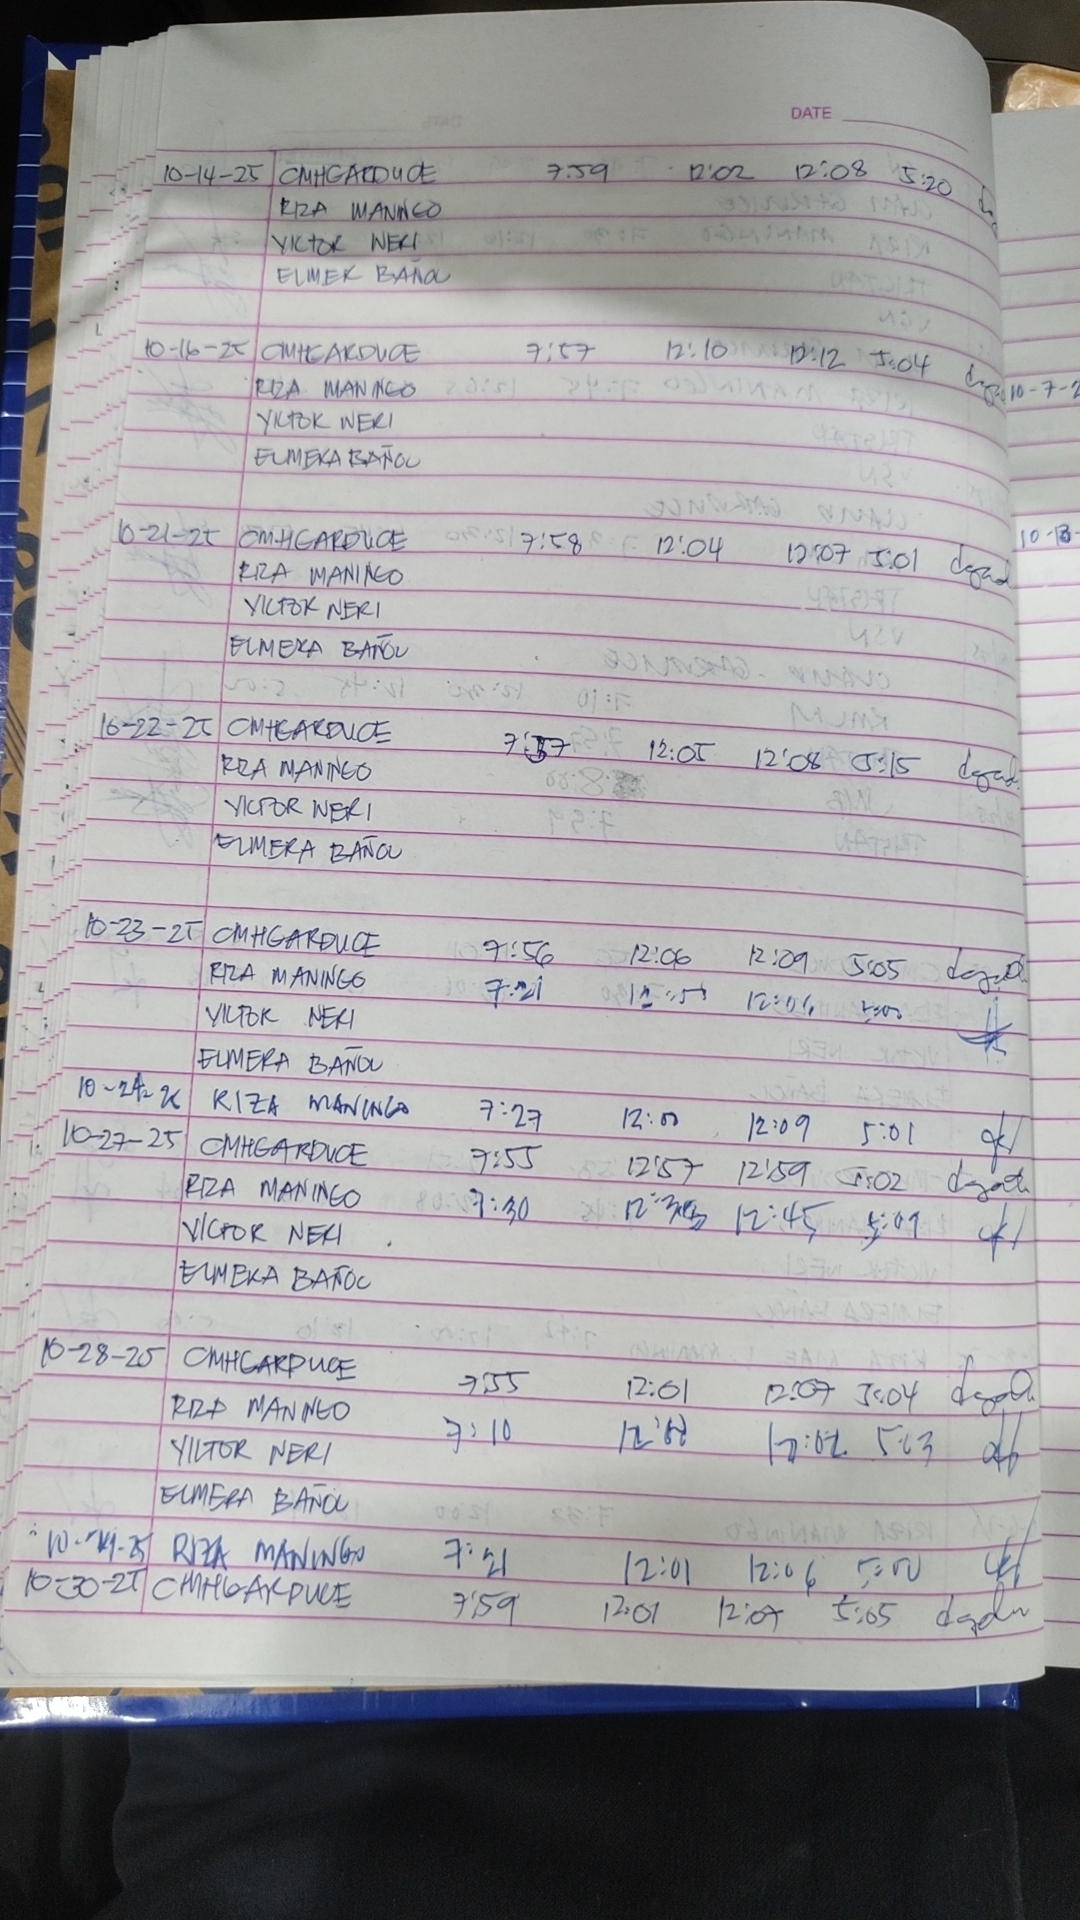 DATE
10-14-25 CMHGARDUCE 7:59 12:02 12:08 5:20
RIZA MANINGO
VICTOR NERI
ELMER BAÑOC
10-16-25 CMHGARDUCE 7:57 12:10 12:12 5:04
RIZA MANINGO 10-7-2
VICTOR NERI
ELMERA BAÑOC
10-21-25 CMHGARDUCE 7:58 12:04 12:07 5:01
RIZA MANINGO
VICTOR NERI
ELMERA BAÑOC
10-22-25 CMHGARDUCE 7:57 12:05 12:08 5:15
RIZA MANINGO
VICTOR NERI
ELMERA BAÑOC
10-23-25 CMHGARDUCE 7:56 12:06 12:09 5:05
RIZA MANINGO 7:21 12:06 5:00
VICTOR NERI
ELMERA BAÑOC
RIZA MANINGO 7:27 12:00 12:09 5:01
10-27-25 CMHGARDUCE 7:55 12:57 12:59 5:02
RIZA MANINGO 7:30 12:45 5:09
VICTOR NERI
ELMERA BAÑOC
10-28-25 CMHGARDUCE 7:55 12:01 12:07 5:04
RIZA MANINGO 7:10 12:02 5:03
VICTOR NERI
ELMERA BAÑOC
RIZA MANINGO 7:21 12:01 12:06 5:00
10-30-25 CMHGARDUCE 7:59 12:01 12:07 5:05